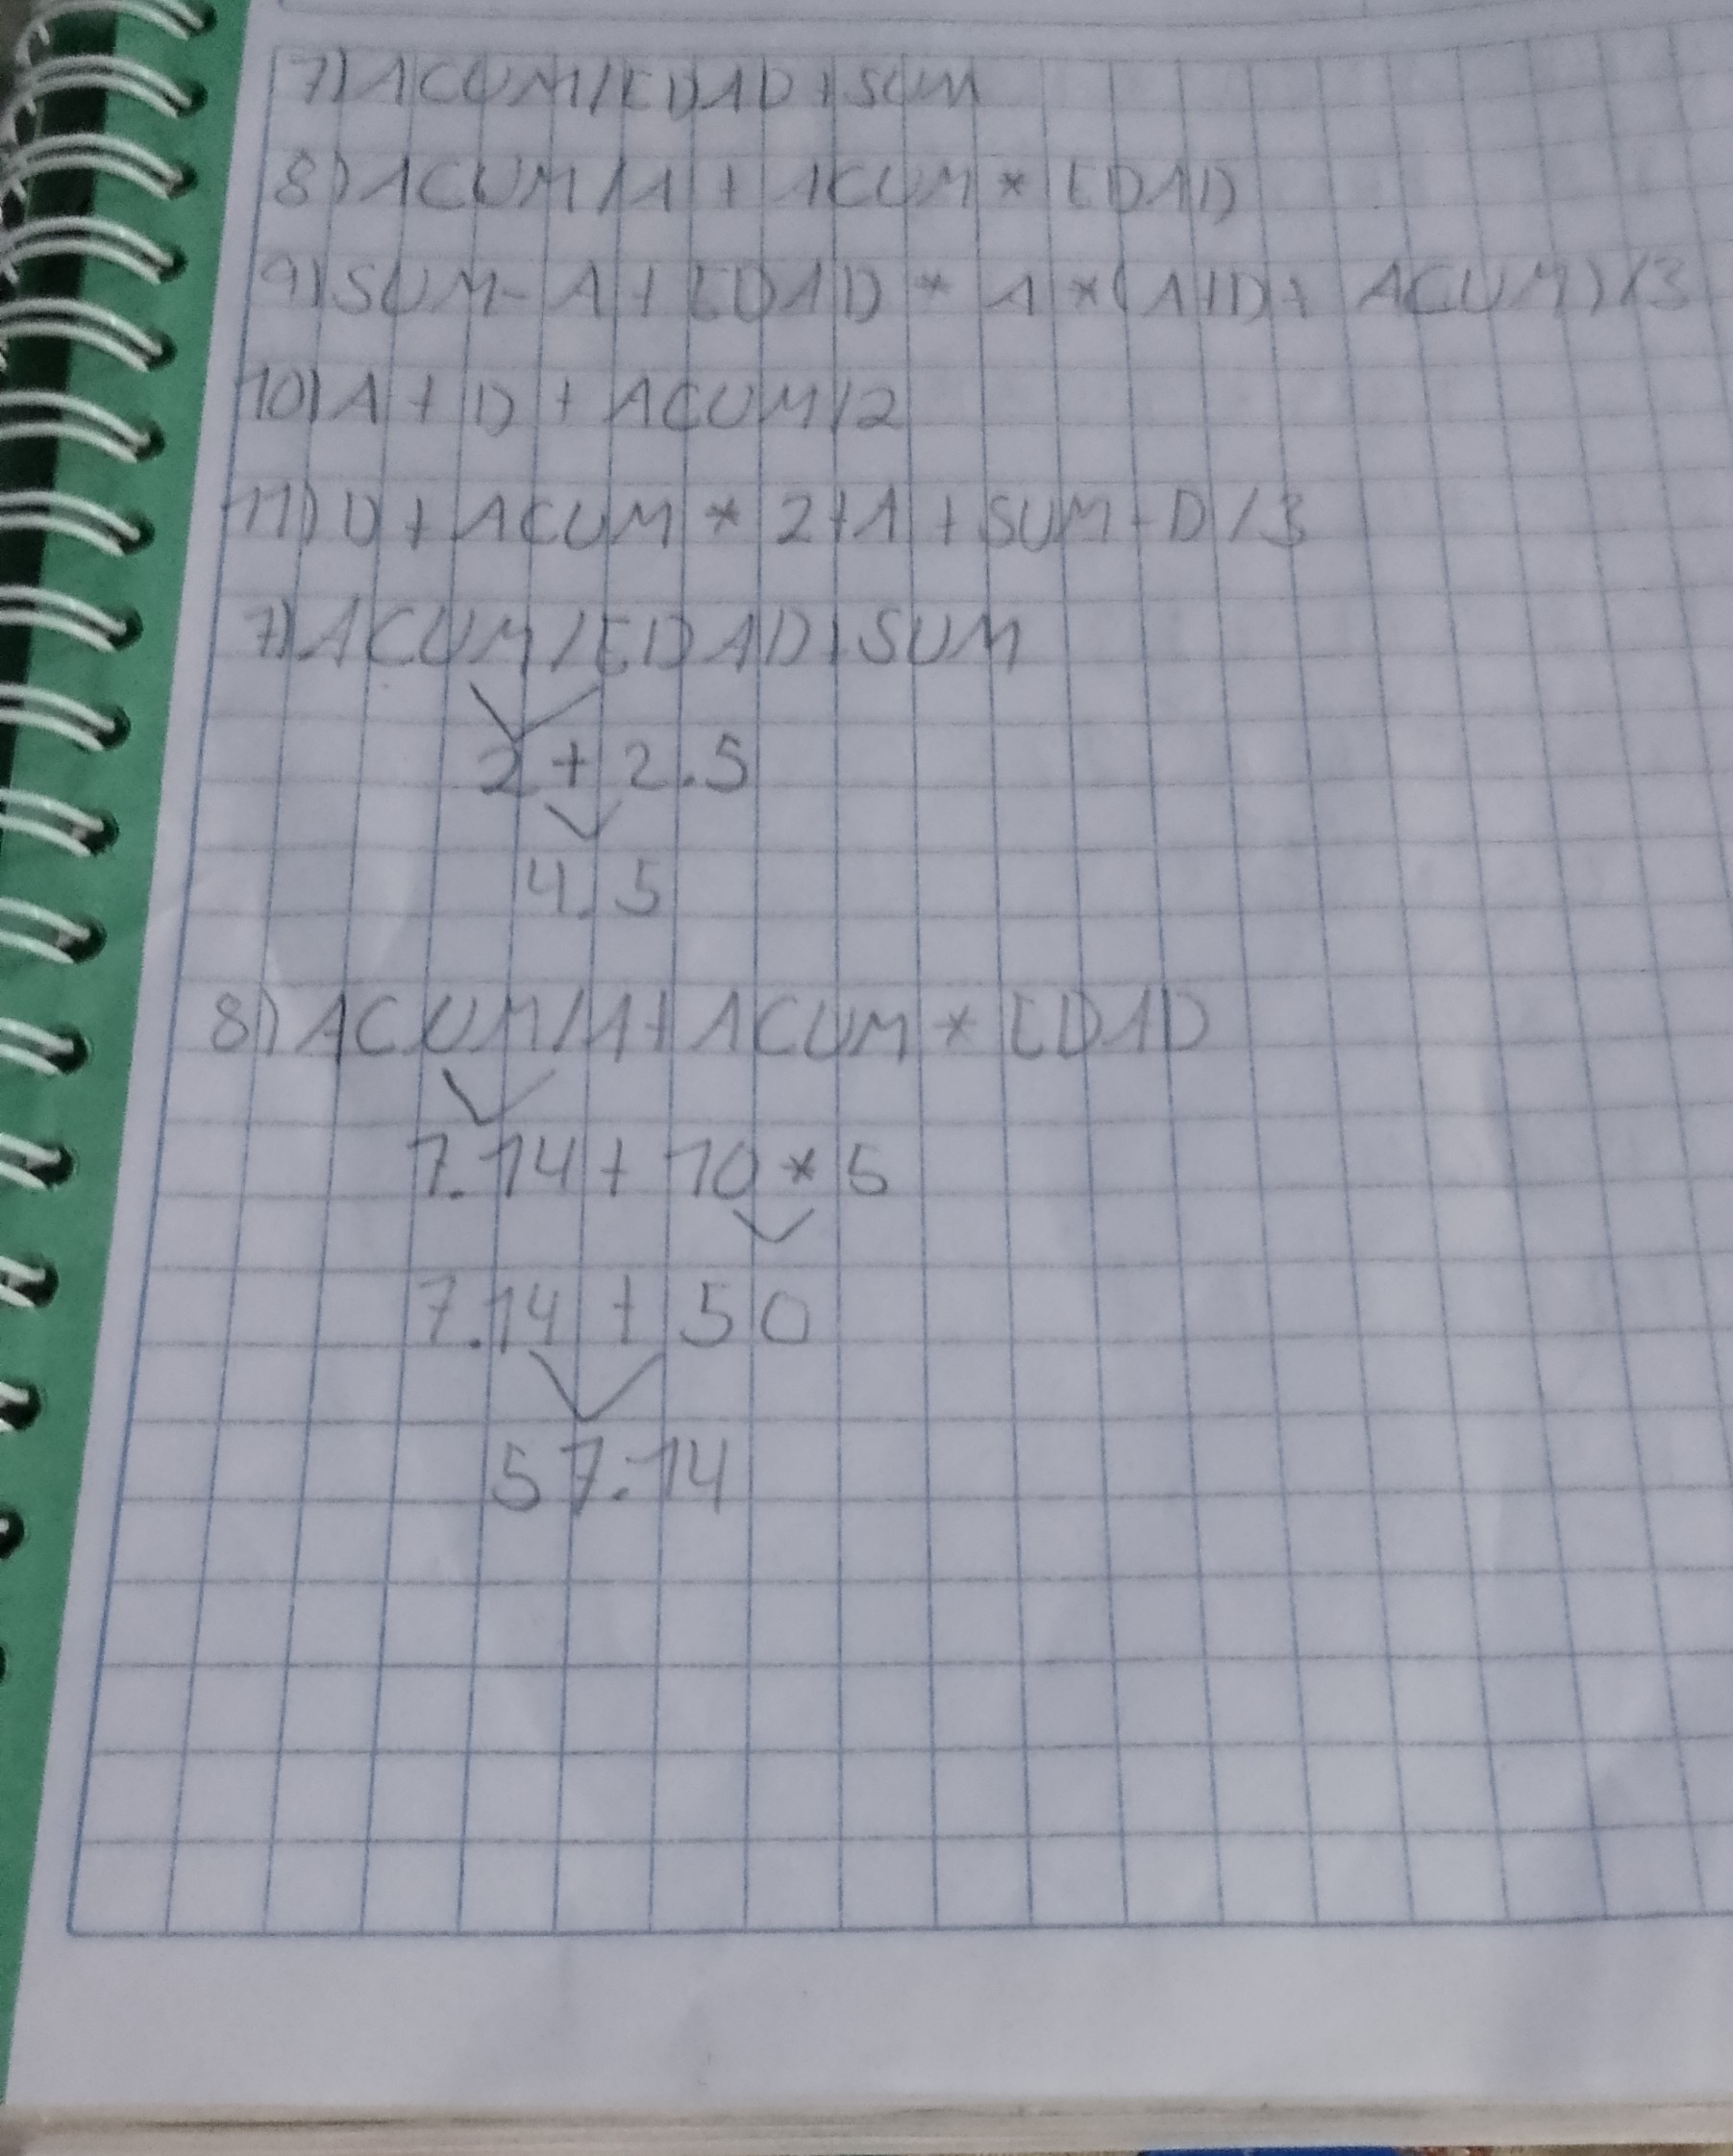 7) ACUM/EDAD+SUM
8) ACUM/A + ACUM * EDAD
9) SUM-A+EDAD * A *(A+D+ ACUM)/3
10) A + D + ACUM/2
11) D + ACUM * 2+A + SUM-D/3
7) ACUM/EDAD+SUM
2 + 2.5
4.5
8) ACUM/A+ACUM * EDAD
7.14 + 10 * 5
7.14 + 50
57.14